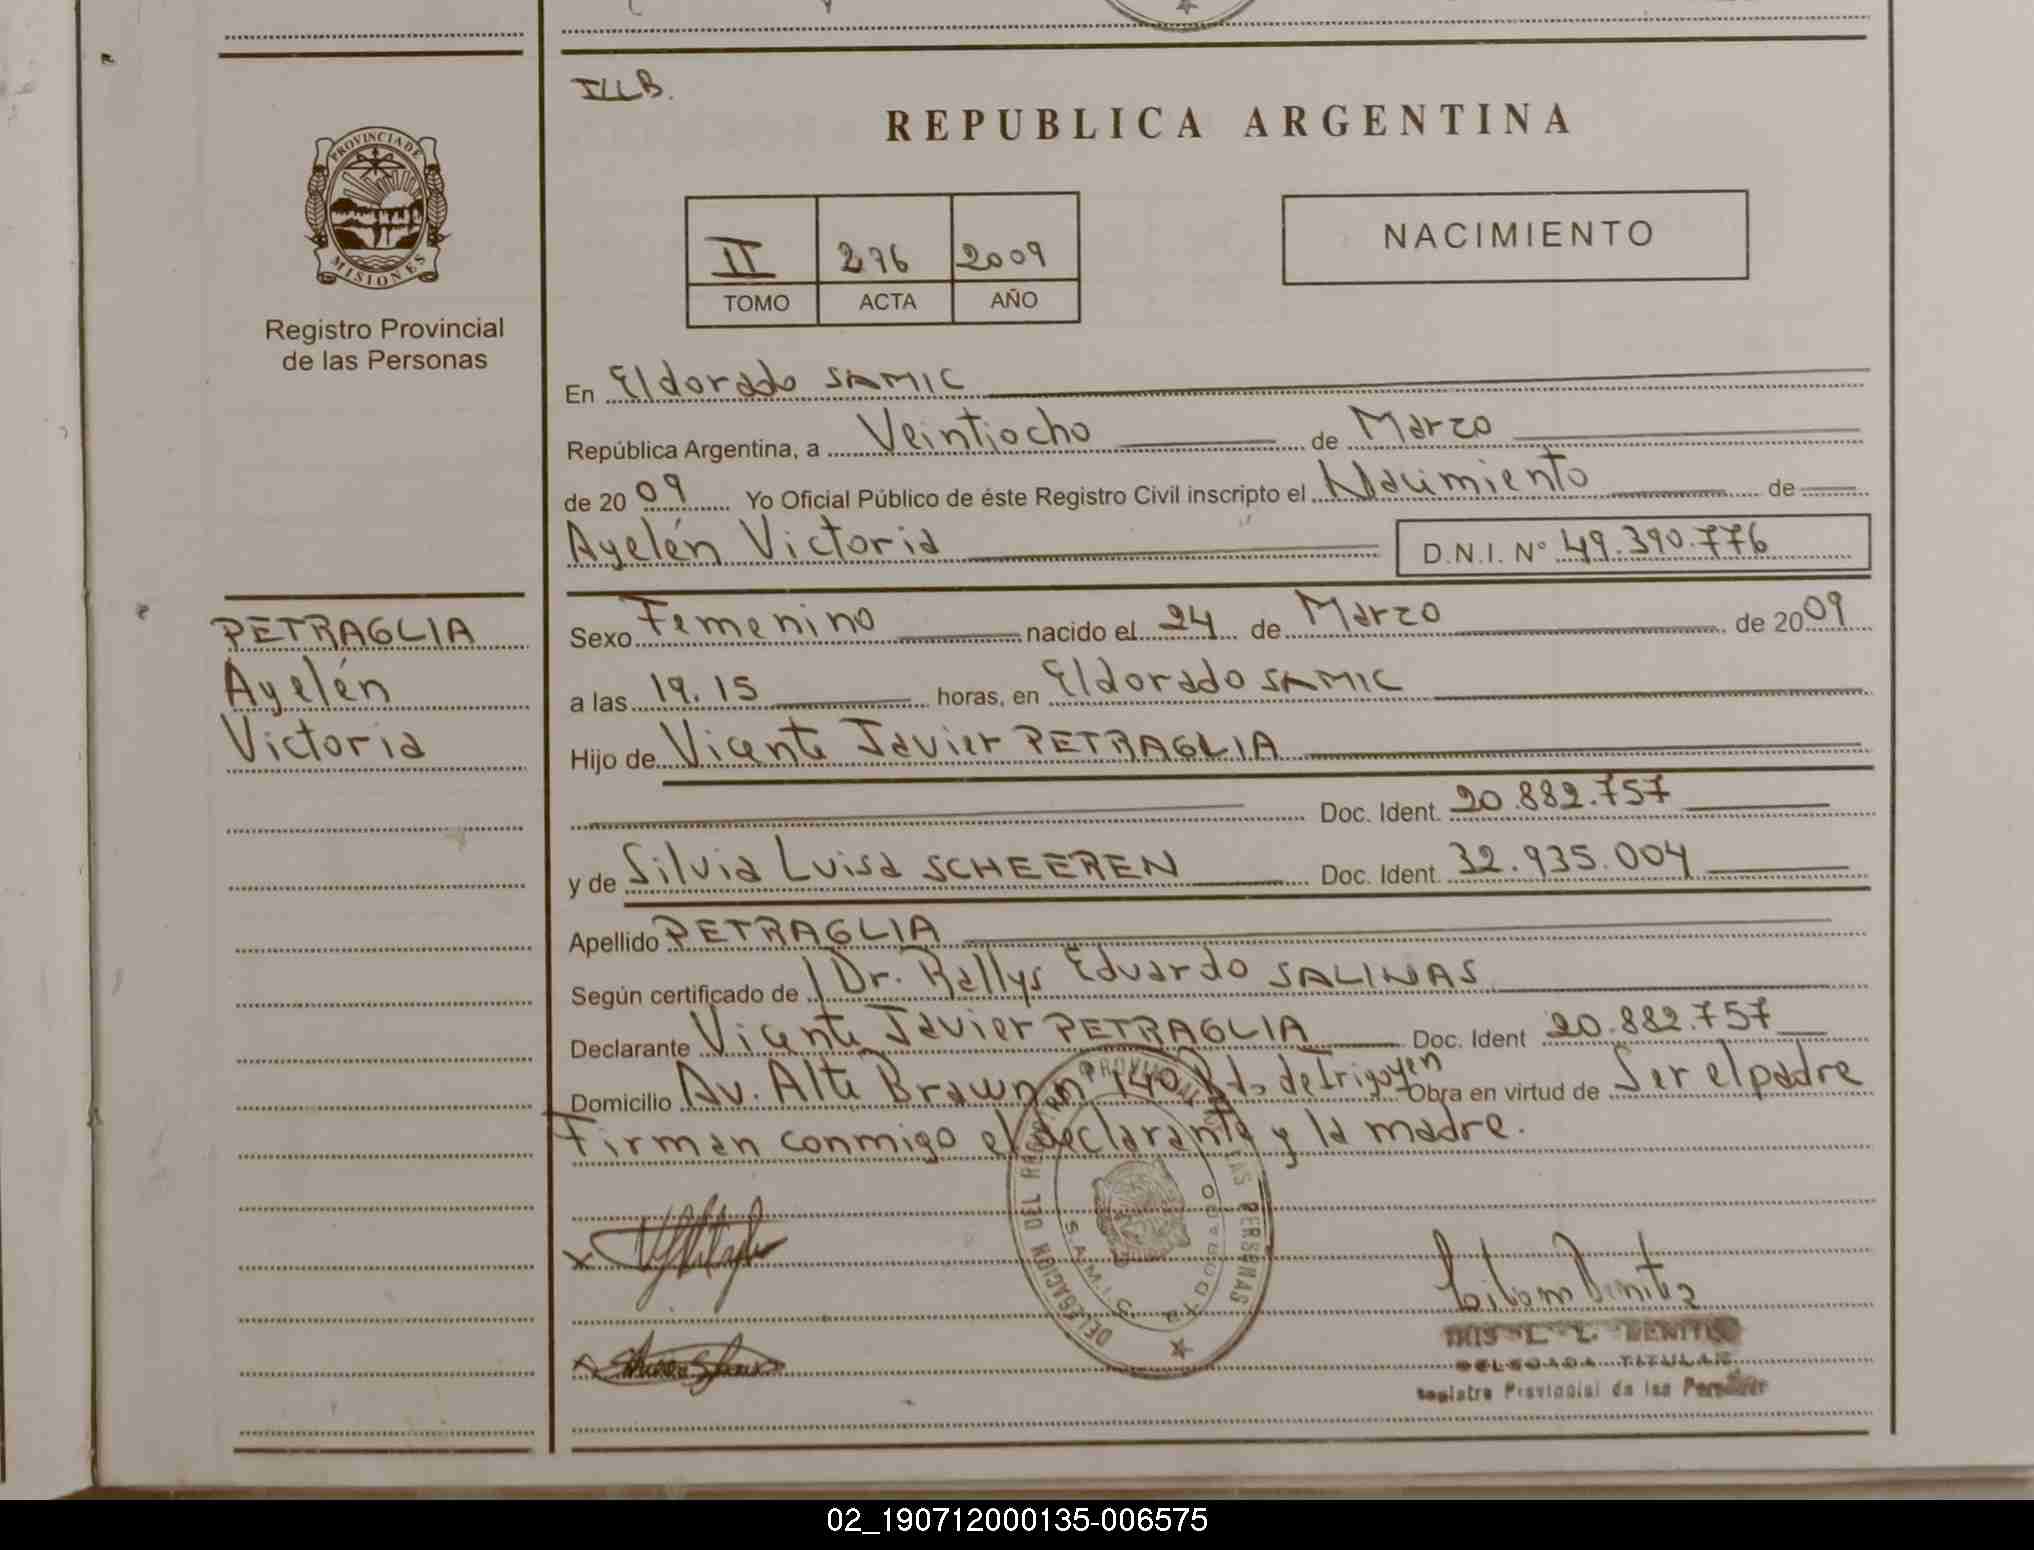 ILLB.
REPUBLICA ARGENTINA
PROVINCIA DE
MISIONES
Registro Provincial
de las Personas
NACIMIENTO
II 276 2009
TOMO ACTA AÑO
En Eldorado SAMIC
República Argentina, a Veintiocho de Marzo
de 2009 Yo Oficial Público de éste Registro Civil inscripto el Nacimiento de
Ayelén Victoria D.N.I. Nº 49.390.776
PETRAGLIA
Ayelén
Victoria
Sexo Femenino nacido el 24 de Marzo de 2009
a las 19.15 horas, en Eldorado SAMIC
Hijo de Vicente Javier PETRAGLIA
Doc. Ident. 20.882.757
y de Silvia Luisa SCHEEREN Doc. Ident. 32.935.004
Apellido PETRAGLIA
Según certificado de Dr. Rallys Eduardo SALINAS
Declarante Vicente Javier PETRAGLIA Doc. Ident 20.882.757
Domicilio Av. Alte Brawnn 140 Bdo deIrigoyen Obra en virtud de Ser el padre
Firman conmigo el declarante y la madre.
DELEGACION DEL REGISTRO PROVINCIAL DE LAS PERSONAS
S.A.M.I.C. ELDORADO
DELEGADA TITULAR
Registro Provincial de las Personas
02_190712000135-006575